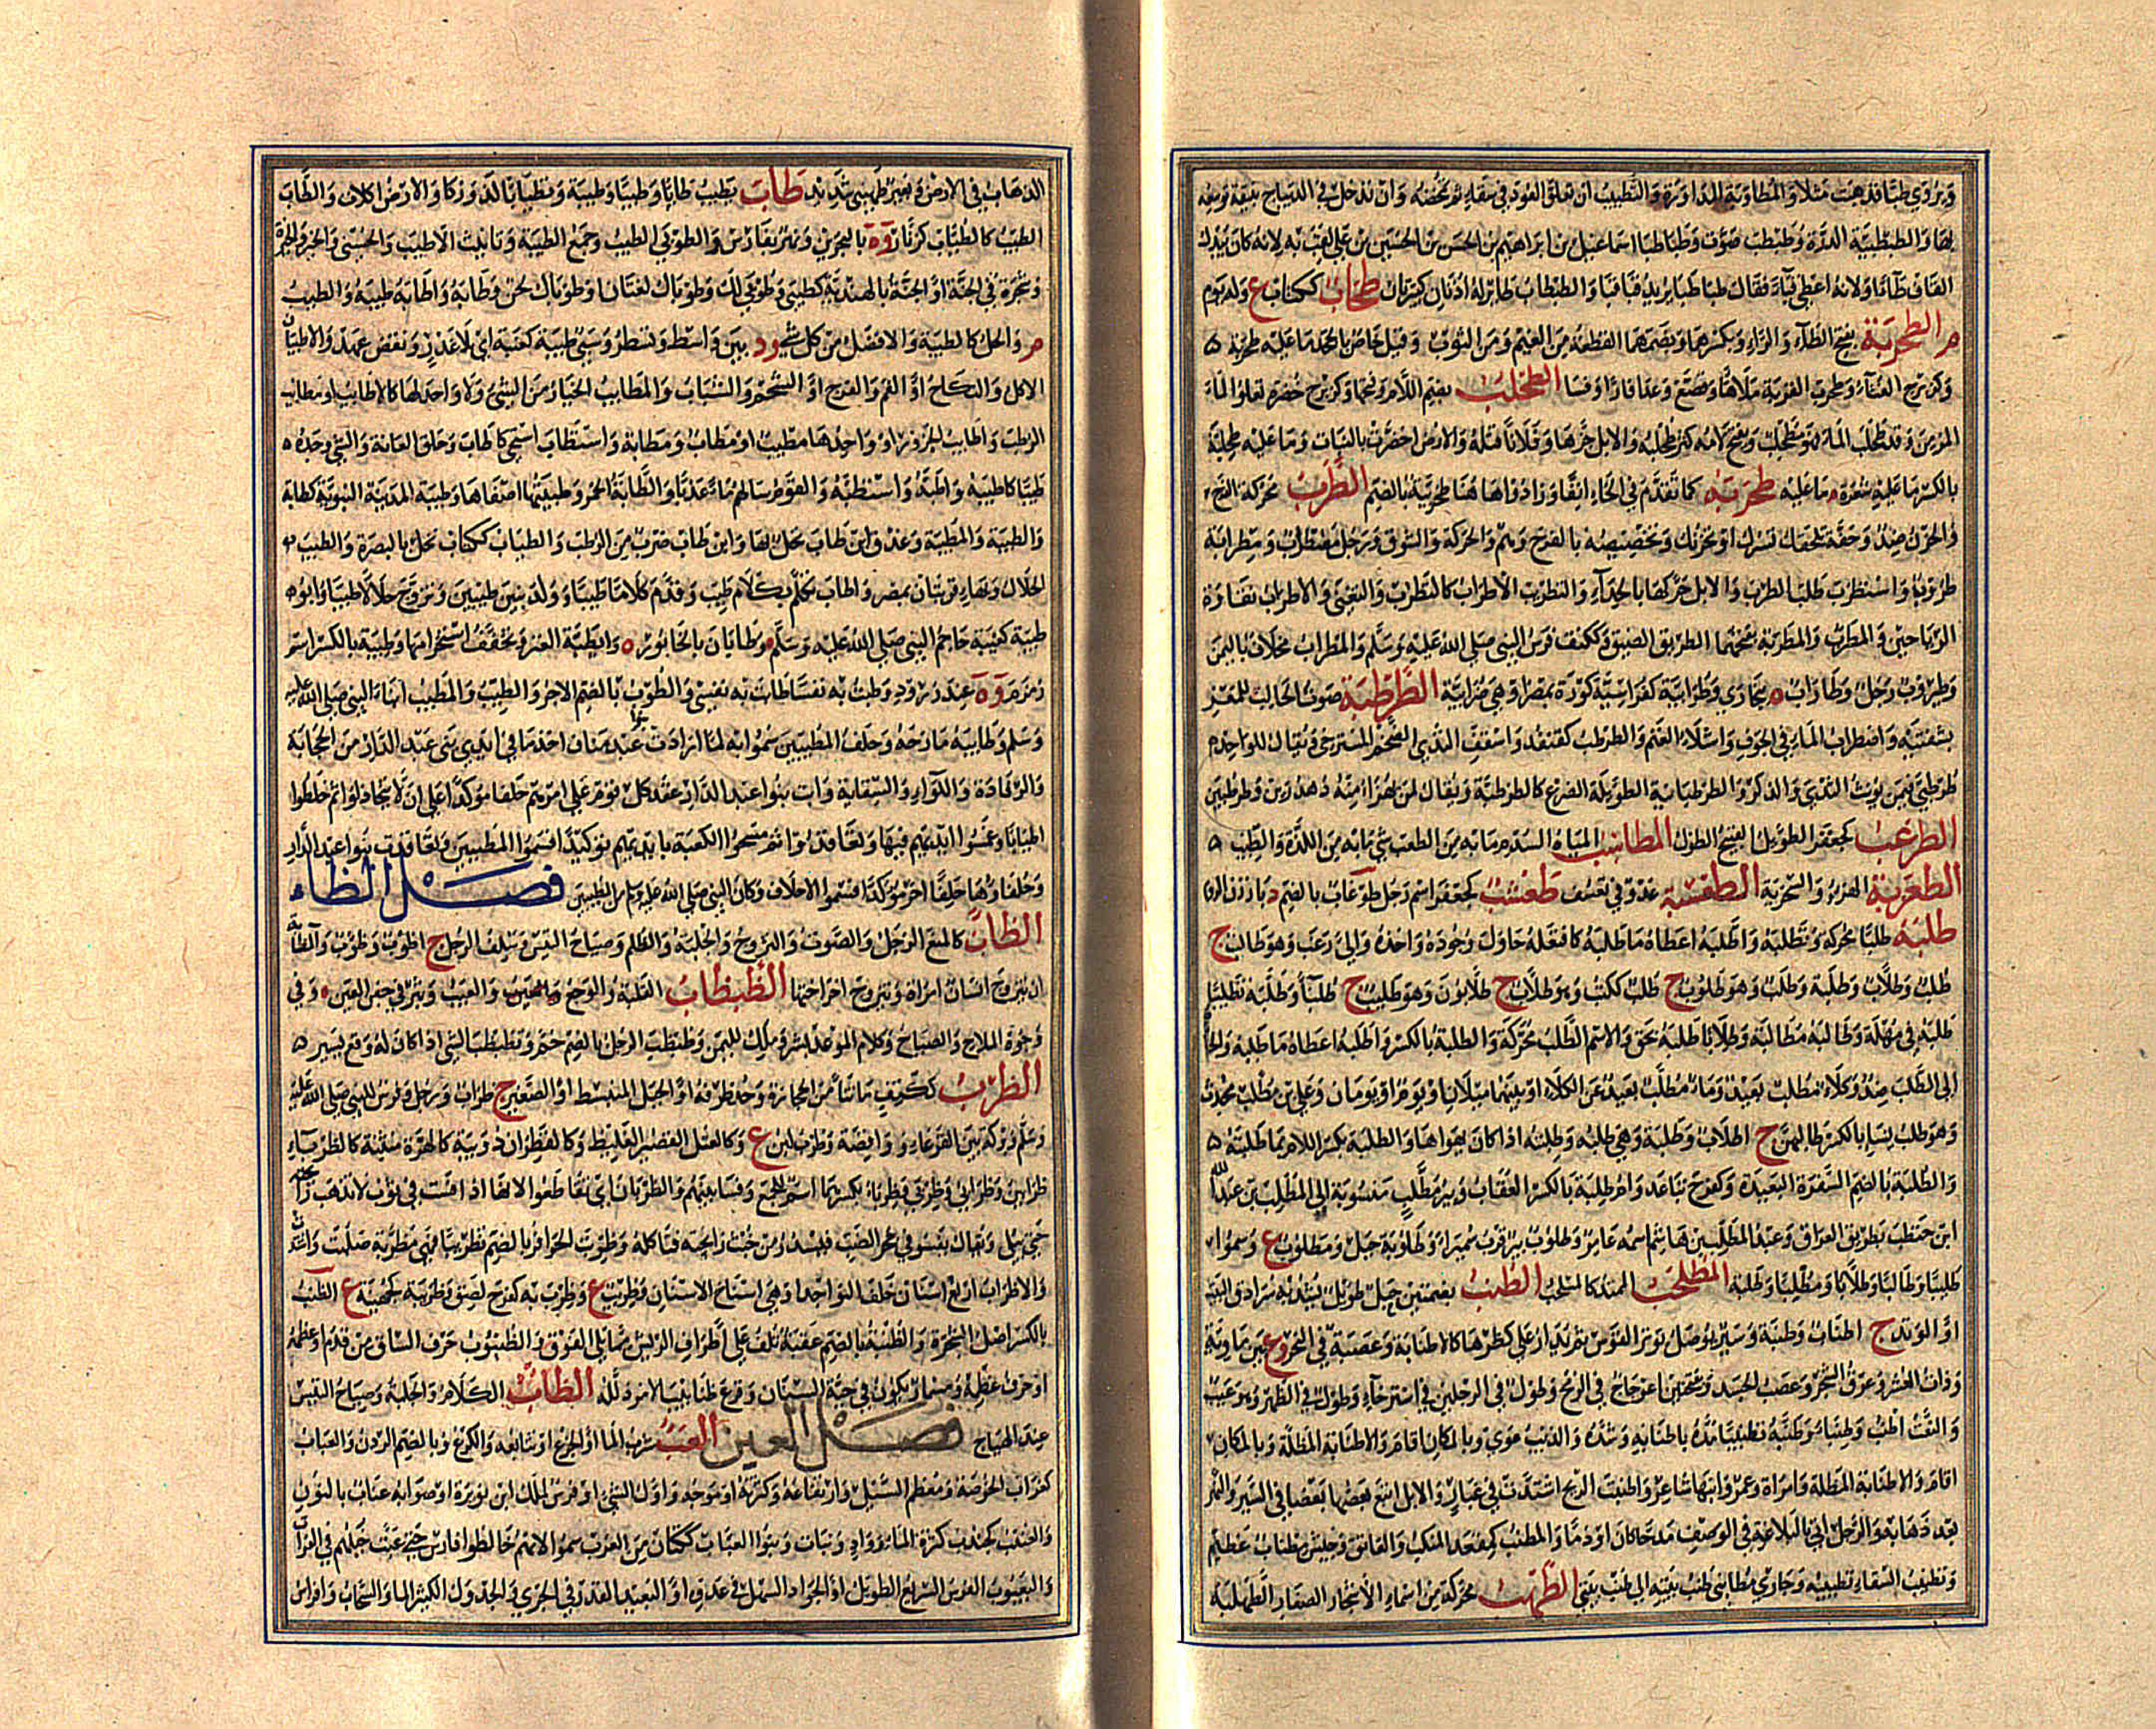 ويروى طبا قد همت مثلا والمطاوبة المداورة والتطبيب ان تعلق العود في سقاء ثم تمخضه وان تدخل في الديباج بنيقة توسعه
بها والطبطبية الدرة وطبطب صوت وطباطبا اسماعيل بن ابراهيم بن الحسن بن الحسين بن علي لقب به لانه كان يبدل
القاف طاء او لانه اعطي قباء فقال طباطبا يريد قباقبا والطبطاب طائر له اذنان كبيرتان طحاب ككتاب ع وله يوم
م الطحربة بفتح الطاء والراء وبكسرهما وبضمهما القطعة من الغيم ومن الثوب وقيل خاص بالجحد ما عليه طحربة
وكزبرج الغثاء وطحرب القربة ملاها وقصع وعدا فارا وفسا الطحلب بضم اللام وفتحها وكزبرج خضرة تعلو الماء
المزمن وقد طحلب الماء فهو مطحلب وبفتح لامه كثر طحلبه والابل جزها وفلانا قتله والارض اخضرت بالنبات وما عليه طحلبة
بالكسر ما عليه شعرة ما عليه طخربة كما تقدم في الحاء انفا وزادوا ها هنا طخربية بالضم الطرب محركة الفرح
والحزن ضد وخفة تلحقك تسرك او تحزنك وتخصيصه بالفرح وهم والحركة والشوق ورجل مطراب ومطرابة
طروب واستطرب طلب الطرب والابل حركها بالحداء والتطريب الاطراب كالتطرب والتغني والاطراب نقاوة
الرياحين والمطرب والمطربة بفتحهما الطريق الضيق وككتف فرس النبي صلى الله عليه وسلم والمطراب مخلاف باليمن
وطيروب رجل وطاراب ه ببخارى وطرابية كفراسية كورة بمصر او هي ضرابية الطرطبة صوت الحالب للمعز
بشفتيه واضطراب الماء في الجوف واشلاء الغنم والطرطب كقنفذ واسقف الثدي الضخم المسترخي ويقال للواحد
طرطبى فيمن يؤنث الثدي والذكر والطرطبانية الطويلة الضرع كالطرطبة ويقال لمن يهزا منه دهدرين وطرطبين
الطرعب كجعفر الطويل القبيح الطول المطاسب المياه السدم ما به من الطعب شئ ما به من اللذة والطيب
الطعزبة الهزء والسخرية الطعسبة عدو في تعسف طغشب كجعفر اسم رجل طوغاب بالضم د بارزن الروم
طلبه طلبا محركة وتطلبه واطلبه اعطاه ما طلبه كافتعله حاول وجوده واخذه والي رغب وهو طالب ج
طلب وطلاب وطلبة وطلب وهو طلوب ج طلب ككتب وهو طلاب ج طلابون وهو طليب ج طلباء وطلبه تطليبا
طلبه في مهلة وطالبه مطالبة وطلابا طلبه بحق والاسم الطلب محركة والطلبة بالكسر واطلبه اعطاه ما طلبه والجاه
الى الطلب ضد وكلا مطلب بعيد وماء مطلب بعيد عن الكلا او بينهما ميلان او يوم او يومان وعلي بن مطلب محدث
وهو طلب نساء بالكسر طالبهن ج اطلاب وطلبة وهي طلبه وطلبته اذا كان يهواها والطلبة بكسر اللام ما طلبته
والطلبة بالضم السفرة البعيدة وكفرح تباعد وام طلبة بالكسر العقاب وبير مطلب منسوبة الى المطلب بن عبد الله
ابن حنطب بطريق العراق وعبد المطلب بن هاشم اسمه عامر وطلوب بير قرب سميراء وطلوبة جبل ومطلوب ع وسموا
طليبا وطالبا وطلابا ومطلبا وطلبة المطلحب الممتد كالمتلئب الطنب بضمتين حبل طويل يشد به سرادق البيت
او الوتد ج اطناب وطنبة وسير يوصل بوتر القوس ثم يدار على كظرها كالاطنابة وعصبة في النحر وع بين ماوية
وذات العشر وعرق الشجر وعصب الجسد وبفتحتين اعوجاج في الرمح وطول في الرجلين في استرخاء وطول في الظهر وهو عيب
والنعت اطنب وطنباء وطنبه تطنيبا مده باطنابه وشده والذئب عوى وبالمكان اقام والاطنابة المظلة وبالمكان
اقام والاطنابة المظلة وامراة وعمرو ابنها شاعر واطنبت الريح اشتدت في غبار والابل اتبع بعضها بعضا في السير والنهر
بعد ذهابه والرجل اتى بالبلاغة في الوصف مدحا كان او ذما والمطنب كمقعد المنكب والعاتق وجيش مطناب عظيم
وتطنيب السقاء تطبيبه وجاري مطانبي طنب بيته الى طنب بيتي الطهب محركة من اسماء الاشجار الصغار الطهلبة
الذهاب في الارض وبعير طهنبى شديد طاب يطيب طابا وطيبا وطيبة وتطيابا لذ وزكا والارض اكلات والطاب
الطيب كالطياب كزنار وة بالبحرين ونهر بفارس والطوبى الطيب وجمع الطيبة وتانيث الاطيب والحسنى والخير والخيرة
وشجرة في الجنة او الجنة بالهندية كطيبى وطوبى لك وطوباك لغتان او طوباك لحن وطابه واطابه طيبه والطيب
م والحل كالطيبة والافضل من كل شئ ود بين واسط وتستر وسبي طيبة كعنبة اي بلا غدر ونقض عهد والاطيبان
الاكل والنكاح او الفم والفرج او الشحم والشباب والمطايب الخيار من الشئ ولا واحد لها كالاطايب او مطايب
الرطب واطايب الجزور او واحدها مطيب او مطاب ومطابة واستطاب استنجى كاطاب وحلق العانة والشئ وجده
طيبا كاطيبه واطبه واستطيبه والقوم سالهم ماء عذبا والطابة الخمر وطيبتها اصفاها وطيبة المدينة النبوية كطابة
والطيبة والمطيبة وعذق ابن طاب نخل بها وابن طاب ضرب من الرطب والطياب ككتاب نخل بالبصرة والطيب
الحلال وبهاء قريتان بمصر واطاب تكلم بكلام طيب وقدم كلاما طيبا وولد بنين طيبين وتزوج حلالا طيبا وابو
طيبة كهيبة حاجم النبي صلى الله عليه وسلم وطابان بالخابور ه وايطبة العنز ويخفف استحرامها وطيبة بالكسر اسم
زمزم وة عند زرود وطبت به نفسا طابت به نفسي والطوب بالضم الاجر والطيب والمطيب ابناء النبي صلى الله عليه
وسلم وطايبه مازحه وحلف المطيبين سموا به لما ارادت بنو عبد مناف اخذ ما في ايدي بني عبد الدار من الحجابة
والرفادة واللواء والسقاية وابت بنو عبد الدار عقد كل قوم على امرهم حلفا مؤكدا على ان لا يتخاذلوا ثم خلطوا
اطيابا وغمسوا ايديهم فيها وتعاقدوا ثم مسحوا الكعبة بايديهم توكيدا فسموا المطيبين وتعاقدت بنو عبد الدار
وحلفاؤها حلفا اخر مؤكدا فسموا الاحلاف وكان النبي صلى الله عليه وسلم من المطيبين فصل الظاء
الظاب كالمنع الزجل والصوت والتزوج والجلبة والظلم وصياح التيس وسلف الرجل ج اظؤب وظؤوب والمظاءبة
ان يتزوج انسان امراة ويتزوج اخر اختها الظبظاب القلبة والوجع والعيب وبثر في جفن العين وفي
وجوه الملاح والصياح وكلام الموعد بشر وملك لليمن وظبظب الرجل بالضم حم وتظبظب الشئ اذا كان له وقع يسير
الظرب ككتف ما نتا من الحجارة وحد طرفه او الجبل المنبسط او الصغير ج ظراب ورجل وفرس للنبي صلى الله عليه
وسلم وبركة بين القرعاء وواقصة وظرب لبن ع وكالعتل القصير الغليظ وكالقطران دويبة كالهرة منتنة كالظرباء
ظرابين وظرابي وظربى وظرباء بكسرهما اسم للجمع وفسا بينهم الظربان اي تقاطعوا لانها اذا فست في ثوب لا تذهب رائحته
حتى يبلى ويقال يفسو في جحر الضب فيسدر من خبث رائحته فتاكله وظربت الحوافر بالضم تظريبا فهي مظربة صلبت واشتدت
والاظراب اربع اسنان خلف النواجذ او هي اسناخ الاسنان وظريب ع وظرب به كفرح لصق وظريبة كجهينة ع الظنب
بالكسر اصل الشجرة والظنبة بالضم عقبة تلف على اطراف الريش مما يلي الفوق والظنبوب حرف الساق من قدم او عظمه
او حرف عظمه ومسمار يكون في جبة السنان وقرع ظنابيب الامر ذلله الظاب الكلام والجلبة وصياح التيس
عند الهياج فصل العين العب شرب الماء او الجرع او تتابعه والكرع وبالضم الردن والعباب
كغراب الخوصة ومعظم السيل وارتفاعه وكثرته او موجه واول الشئ وفرس لمالك ابن نويرة او صوابه عناب بالنون
والعنبب كجندب كثرة الماء وواد ونبات وبنو العباب ككتان من العرب سموا لانهم خالطوا فارس حتى عبت خيلهم في الفرات
واليعبوب الفرس السريع الطويل او الجواد السهل في عدوه او البعيد القدر في الجري والجدول الكثير الماء والسحاب وافراس